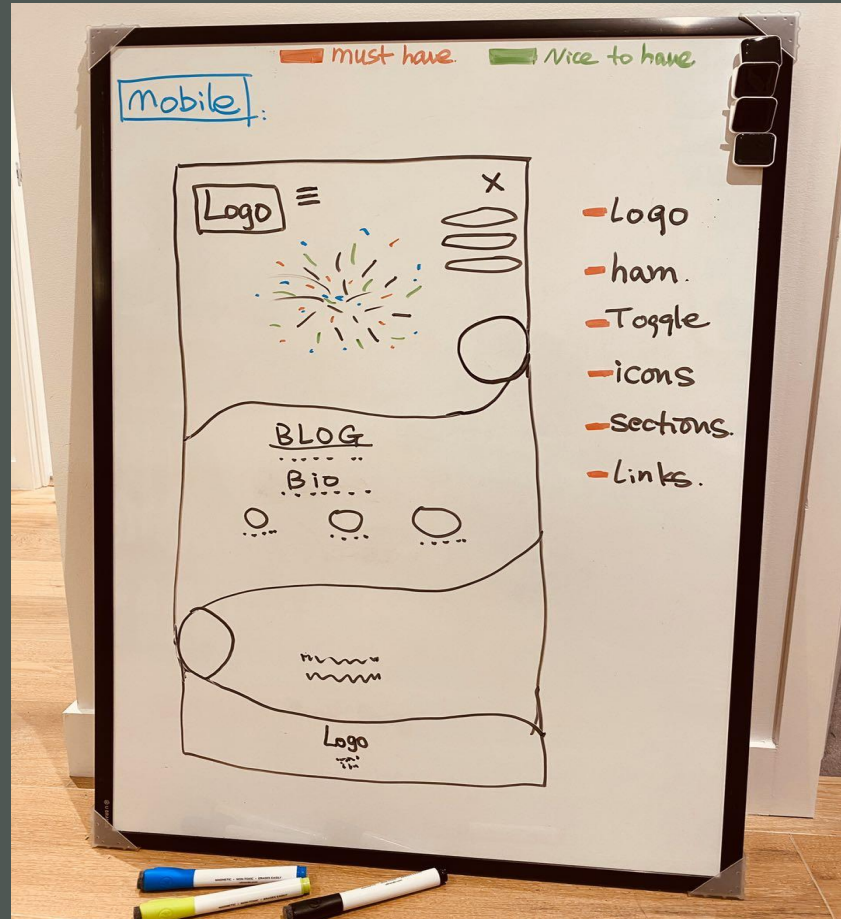 must have.
Nice to have
Mobile:
Logo
X
BLOG
Bio
Logo
Logo
ham.
Toggle
icons
sections.
Links.